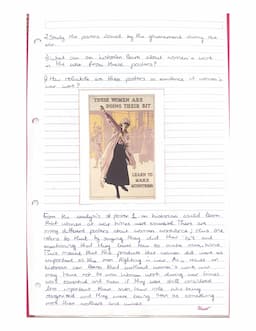 2. Study the posters issued by the government during the
war.
a) What can an historian learn about women's work
in the war from these posters?
b) How reliable are these posters as evidence of women's
war work?
THESE WOMEN ARE
DOING THEIR BIT
LEARN TO
MAKE
MUNITIONS
From the analysis of poster 1, an historian could learn
that women at war times were needed. There are
many different posters about women workforce; this one
refers to that by saying they did their 'bit' and
mentioning that they learn how to make munitions.
This meant that the products that women did were as
important as the men fighting in war. As a result an
historian can learn that without women's work war
may have not
essential and even if they were still considered
less important than men, now
recognized and they were being seen as something
more than mothers and wives.